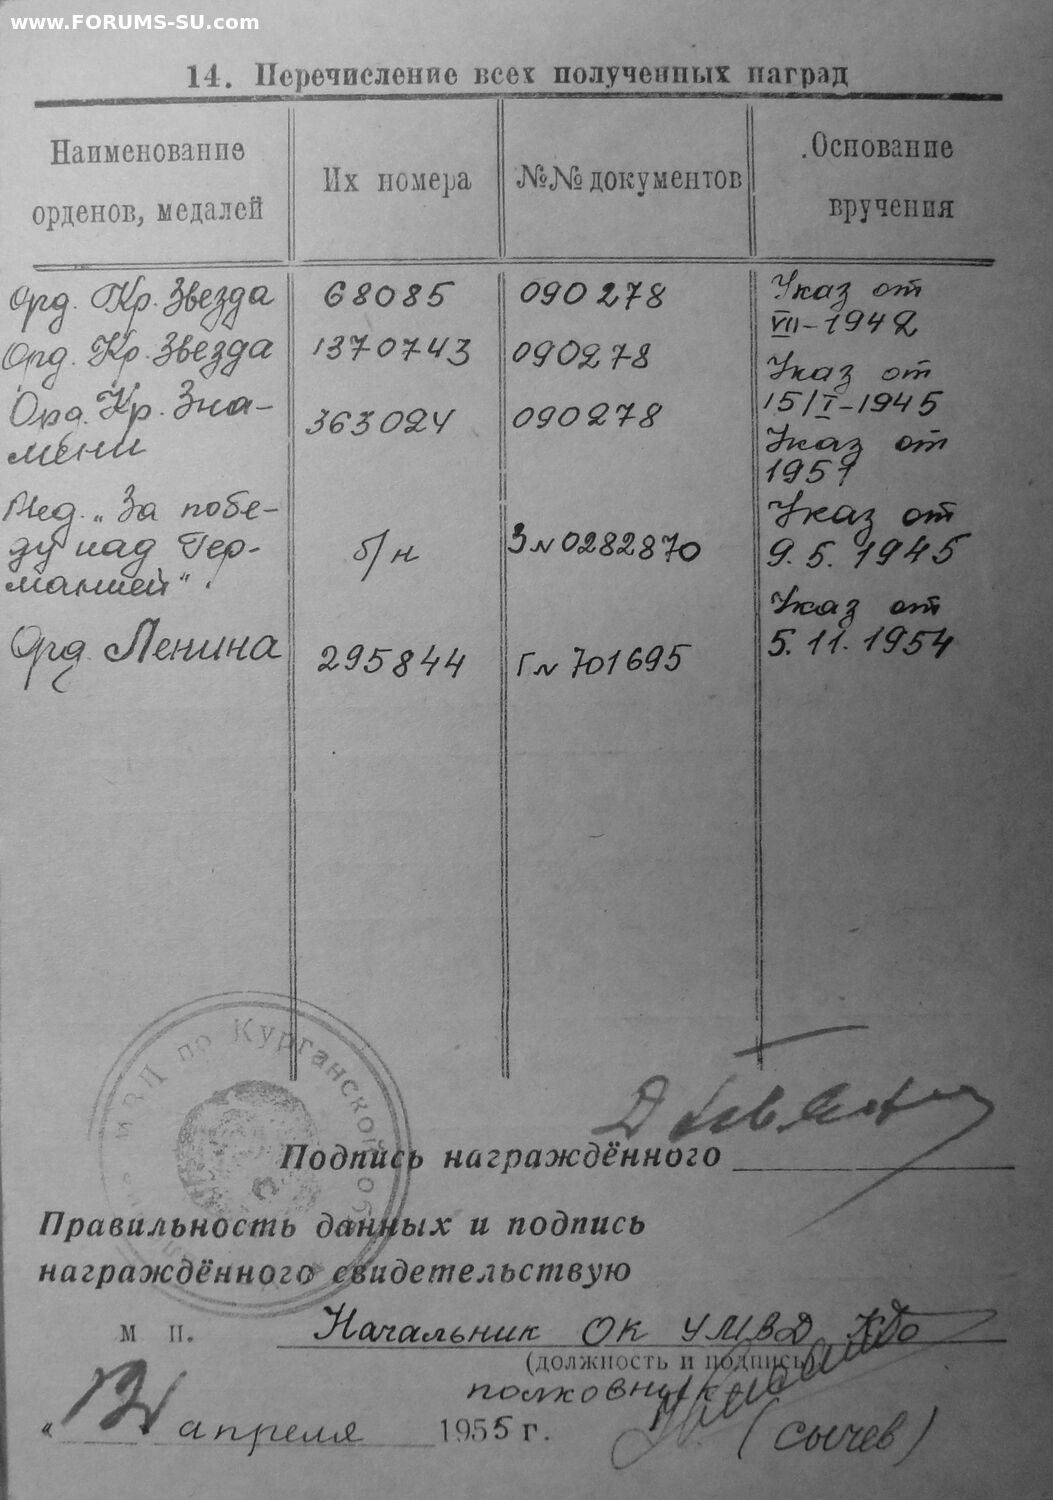 www.FORUMS-SU.com
14. Перечисление всех полученных наград
Наименование орденов, медалей
Их номера
№№ документов
Основание вручения
Орд. Кр. Звезда 68085 090278 Указ от VII-1942
Орд. Кр. Звезда 1370743 090278 Указ от 15/I-1945
Орд. Кр. Зна-
мени 363024 090278 Указ от 1951
Мед. „За побе-
ду над Гер-
манией“. б/н З № 0282870 Указ от 9.5.1945
Орд. Ленина 295844 Г № 701695 Указ от 5.11.1954
МВД по Курганской об
Подпись награждённого
Правильность данных и подпись
награждённого свидетельствую
М П. Начальник ОК УМВД КО
(должность и подпись)
полковник
апреля 1955 г. (Сычев)